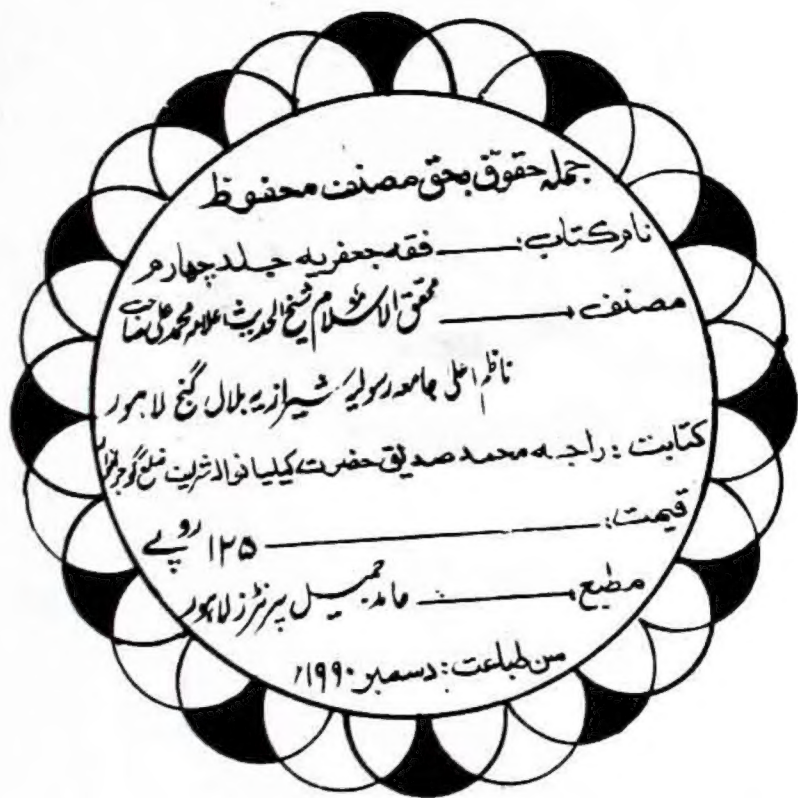 جملہ حقوق بحق مصنف محفوظ
نام کتاب: ــــــ فقہ جعفریہ جلد چہارم
مصنف ــــــ محقق الاسلام شیخ الحدیث علامہ محمد علی صاحب
ناظم اعلیٰ جامعہ رسولیہ شیرازیہ بلال گنج لاہور
کتابت: راجہ محمد صدیق حضرت کیلیانوالہ شریف ضلع گوجرانوالہ
قیمت: ــــــ ۱۲۵ روپے
مطبع ــــــ حامد جمیل پرنٹرز لاہور
سن طباعت: دسمبر ۱۹۹۰ء